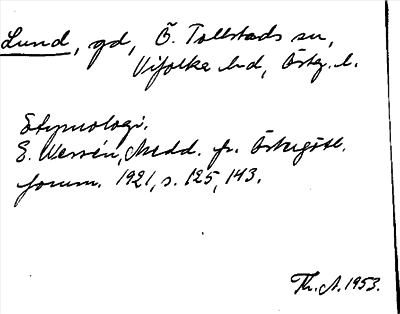 Lund, gd, Ö. Tollstads sn,
Vifolka hd, Östg. l.
Etymologi.
E. Wessén, Medd. fr. Östergötl.
fornm. 1921, s. 125, 143.
Th. A. 1953.